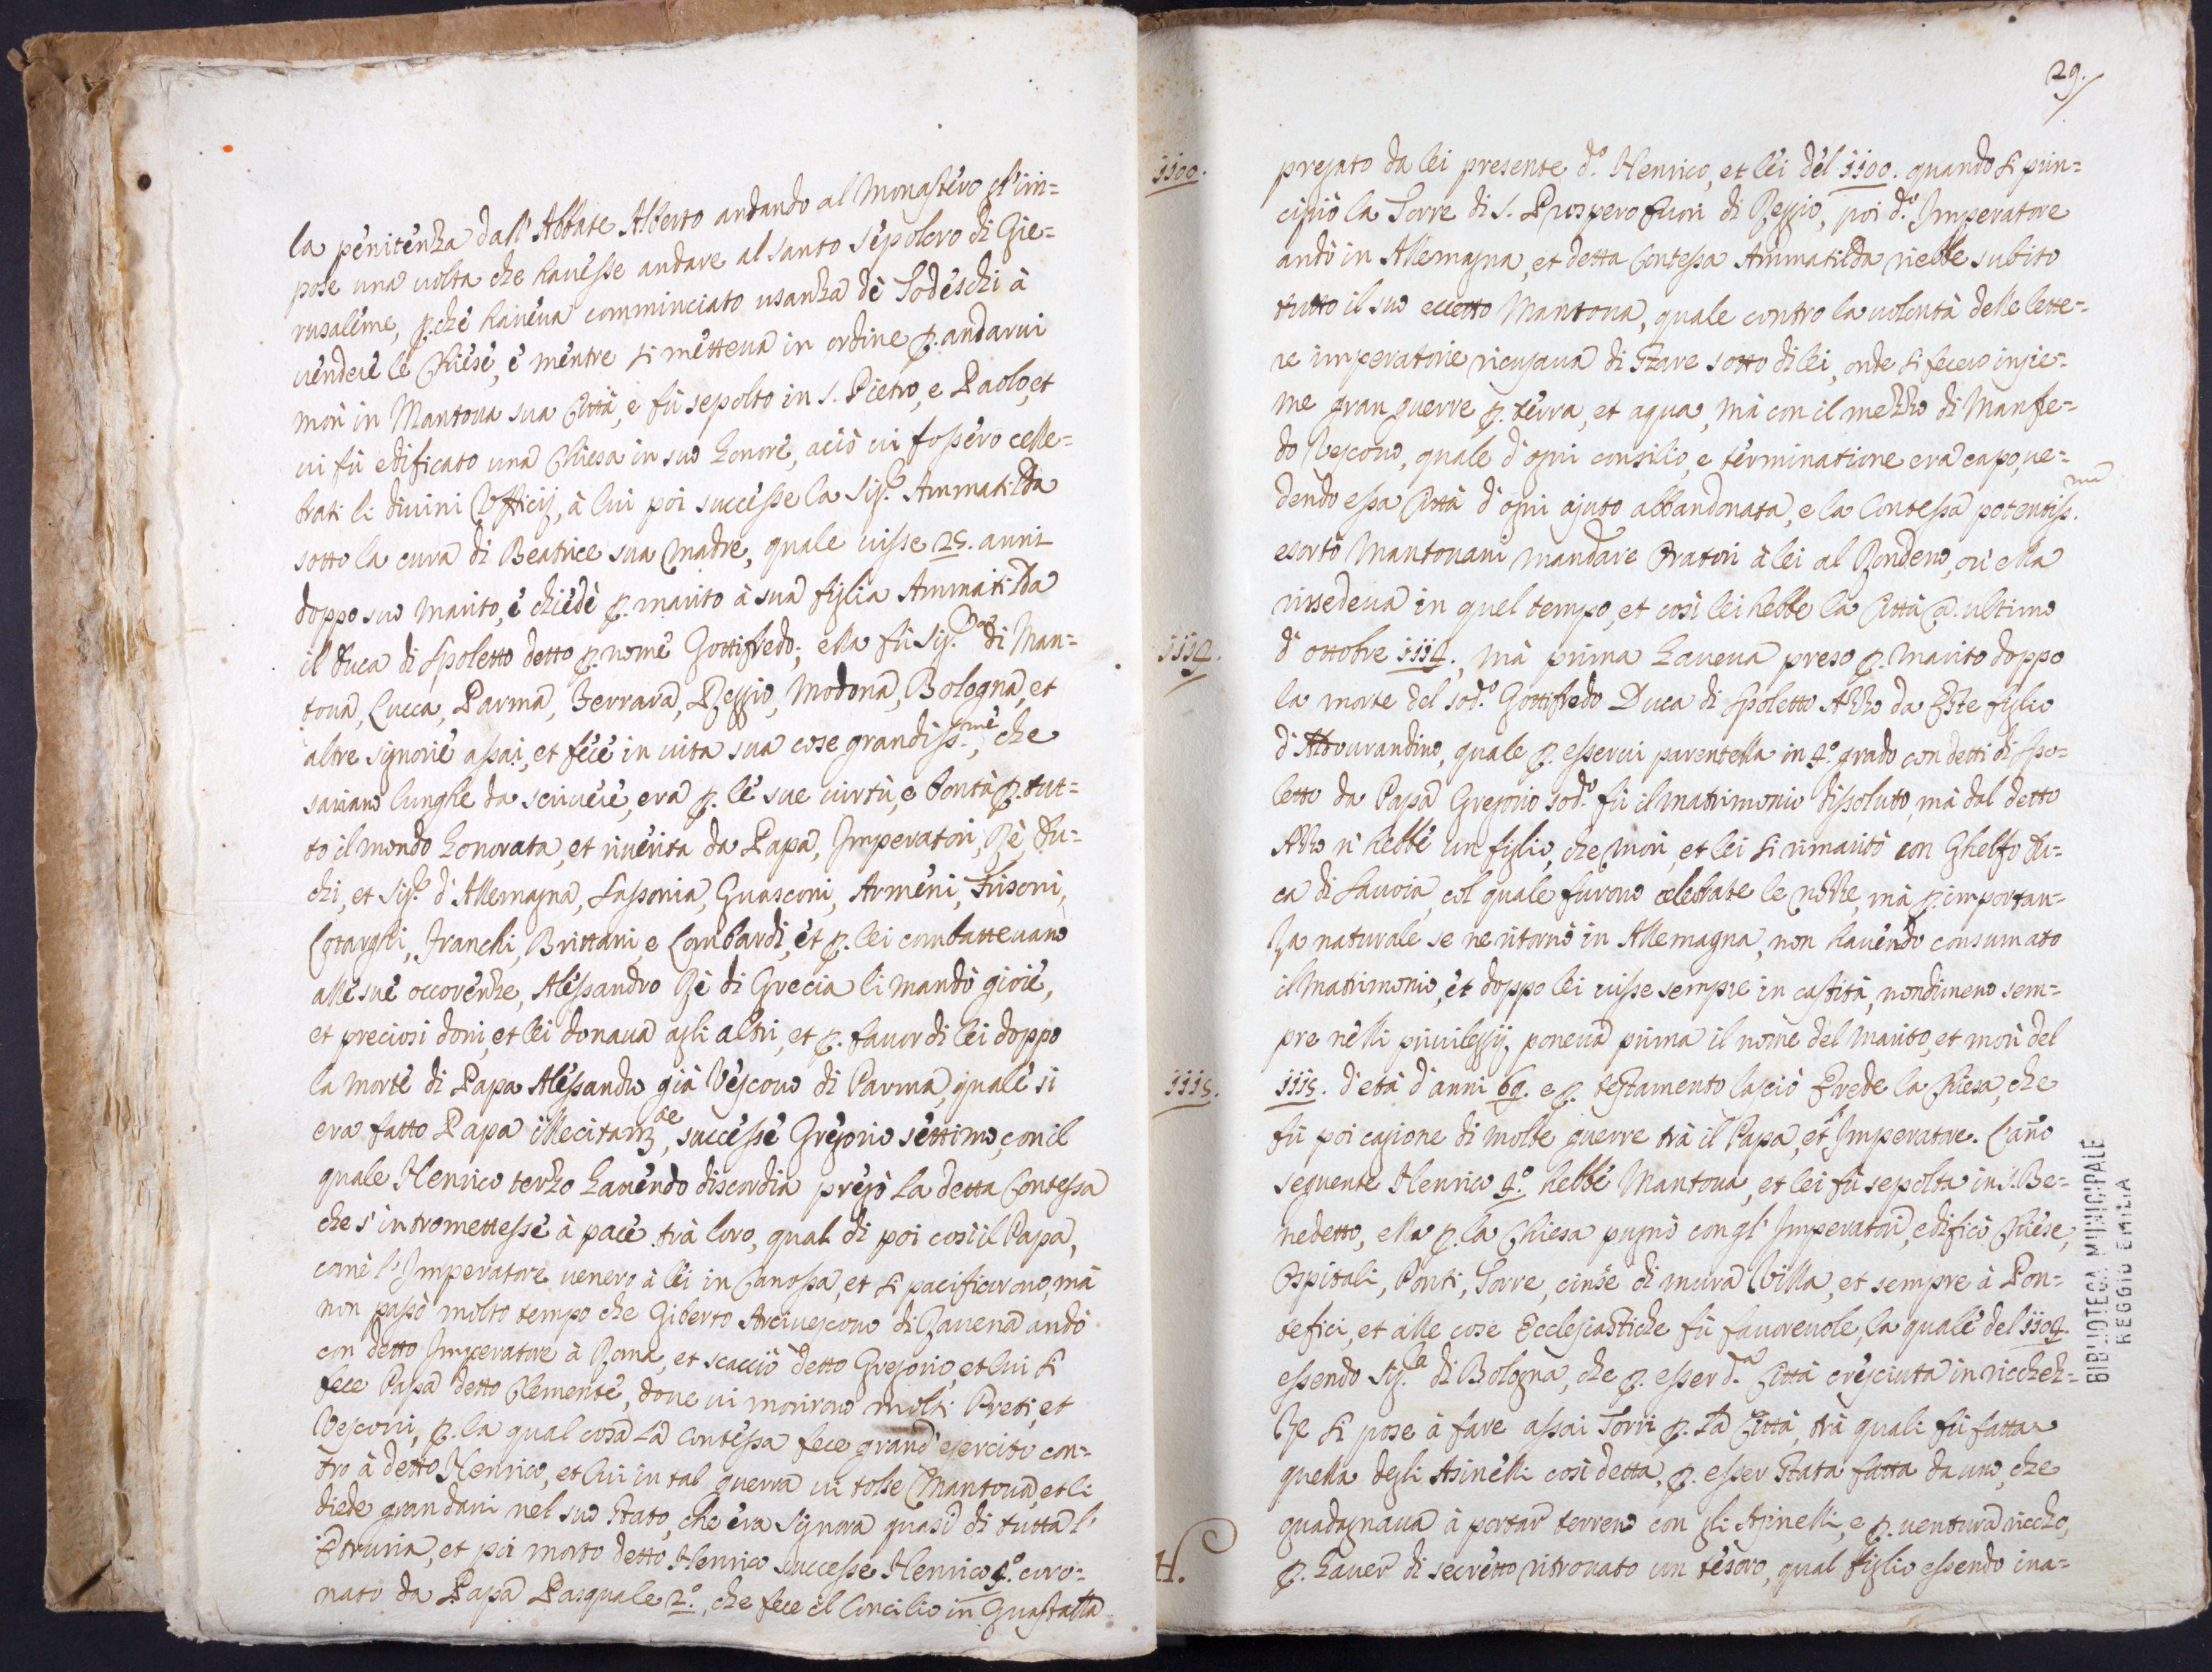 la penitenza dall'Abbate Alberto andando al Monastero gl'im=
pose una uolta che hauesse andare al santo sepolcro di Gie=
rusaleme, p. che haueua comminciato usanza dè Todeschi à
uendere le Chiese, e mentre si metteua in ordine p. andarui
morì in Mantoua sua Città, e fù sepolto in S. Pietro, e Paolo, et
ui fù edificato una Chiesa in suo honore, aciò ui fossero celle=
brati li diuini Ufficij, à lui poi successe la Sig.ra Ammatilda
sotto la cura di Beatrice sua Madre, quale uisse 25. anni
doppo suo Marito, e chiedè p. marito à sua figlia Ammatilda
il Duca di Spoletto detto p. nome Gottifredo; ella fù Sig.ra di Man=
toua, Lucca, Parma, Ferrara, Reggio, Modona, Bologna, et
altre signorie assai, et fece in uita sua cose grandiss.me, che
sariano lunghe da scriuere, era p. le sue uirtù, e bontà p. tut=
to il mondo honorata, et riuerita da Papa, Imperatori, Rè, Du=
chi, et Sig.ri d'Allemagna, Sassonia, Guasconi, Armeni, Frisoni,
Lotarghi, Franchi, Brittani, e Lombardi, et p. lei combatteuano
alle sue occorenze, Alessandro Rè di Grecia li mandò gioie,
et preciosi doni, et lei donaua agli altri, et p. fauor di lei doppo
la morte di Papa Alessandro già Vescouo di Parma, quale si
era fatto Papa illecitam.te, successe Gregorio settimo, con il
quale Henrico terzo hauendo discordia pregò la detta Contessa
che s'intromettesse à pace trà loro, qual di poi così il Papa,
come l'Imperatore uenero à lei in Canossa, et si pacificorono, mà
non passò molto tempo che Giberto Arciuescouo di Rauena andò
con detto Imperatore à Roma, et scacciò detto Gregorio, et lui si
fece Papa detto Clemente, doue ui morirono molti Preti, et
Vescoui, p. la qual cosa la Contessa fece grand'esercito con=
tro à detto Henrico, et lui in tal guerra ui tolse Mantoua, et li
diede gran dani nel suo stato, che era Signora quasi di tutta l'
Etruria, et poi morto detto Henrico successe Henrico 4.o coro=
nato da Papa Pasquale 2.o, che fece il Concilio in Guastalla
29.
1100.
pregato da lei presente d.o Henrico, et lei del 1100. quando si prin=
cipiò la Torre di S. Prospero fuori di Reggio, poi d.o Imperatore
andò in Allemagna, et detta Contessa Ammatilda riebbe subito
tutto il suo eccetto Mantoua, quale contro la uolontà delle lette=
re imperatorie ricusaua di stare sotto di lei, onde si fecero insie=
me gran guerre p. terra, et aqua, mà con il mezzo di Manfre=
do Vescouo, quale d'ogni consilio, e terminatione era capo, ue=
dendo essa Città d'ogni ajuto abbandonata, e la Contessa potentiss.ma
esortò Mantouani mandare Oratori à lei al Bondeno, ou'ella
rissedeua in quel tempo, et così lei hebbe la Città a ultimo
1114.
d'ottobre 1114., mà prima haueua preso p. marito doppo
la morte del sod.o Gottifredo Duca di Spoletto Azzo da Este figlio
d'Aldourandino, quale p. esserui parentella in 4.o grado con detti di Spo=
letto da Papa Gregorio sod.o fù il matrimonio dissoluto, mà dal detto
Azzo n'hebbe un figlio, che morì, et lei si rimaritò con Ghelfo Du=
ca di Sauoia, col quale furono celebrate le nozze, mà p. importan=
za naturale se ne ritornò in Allemagna, non hauendo consumato
il Matrimonio, et doppo lei uisse sempre in castità, nondimeno sem=
pre nelli priuileggij poneua prima il nome del marito, et morì del
1115.
1115. d'età d'anni 69. e p. testamento lasciò Erede la Chiesa, che
fù poi cagione di molte guerre trà il Papa, et l'Imperatore. L'ano
seguente Henrico 4.o hebbe Mantoua, et lei fù sepolta in S. Be=
nedetto, ella p. la Chiesa pugnò con gl'Imperatori, edificò Chiese,
Ospitali, Ponti, Torre, cinse di mura Villa, et sempre à Pon=
tefici, et alle cose Ecclesiastiche fù fauoreuole, la quale del 1109.
essendo Sig.ra di Bologna, che p. esser d.a Città cresciuta in ricchez=
ze si pose à fare assai Torri p. la Città, trà quali fù fatta
quella degli Asinelli così detta, p. esser stata fatta da uno, che
guadagnaua à portar terreno con gli Asinelli, e p. uentura ricco,
H.
p. hauer di secretto ritrouato un tesoro, qual figlio essendo ina=
BIBLIOTECA MUNICIPALE
REGGIO EMILIA